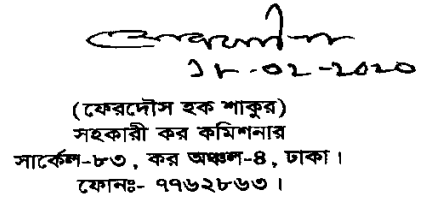 ১৮-০২-২০২০
(ফেরদৌস হক শাকুর)
সহকারী কর কমিশনার
সার্কেল-৮৩, কর অঞ্চল-৪, ঢাকা।
ফোনঃ- ৭৭৬২৮৬৩।